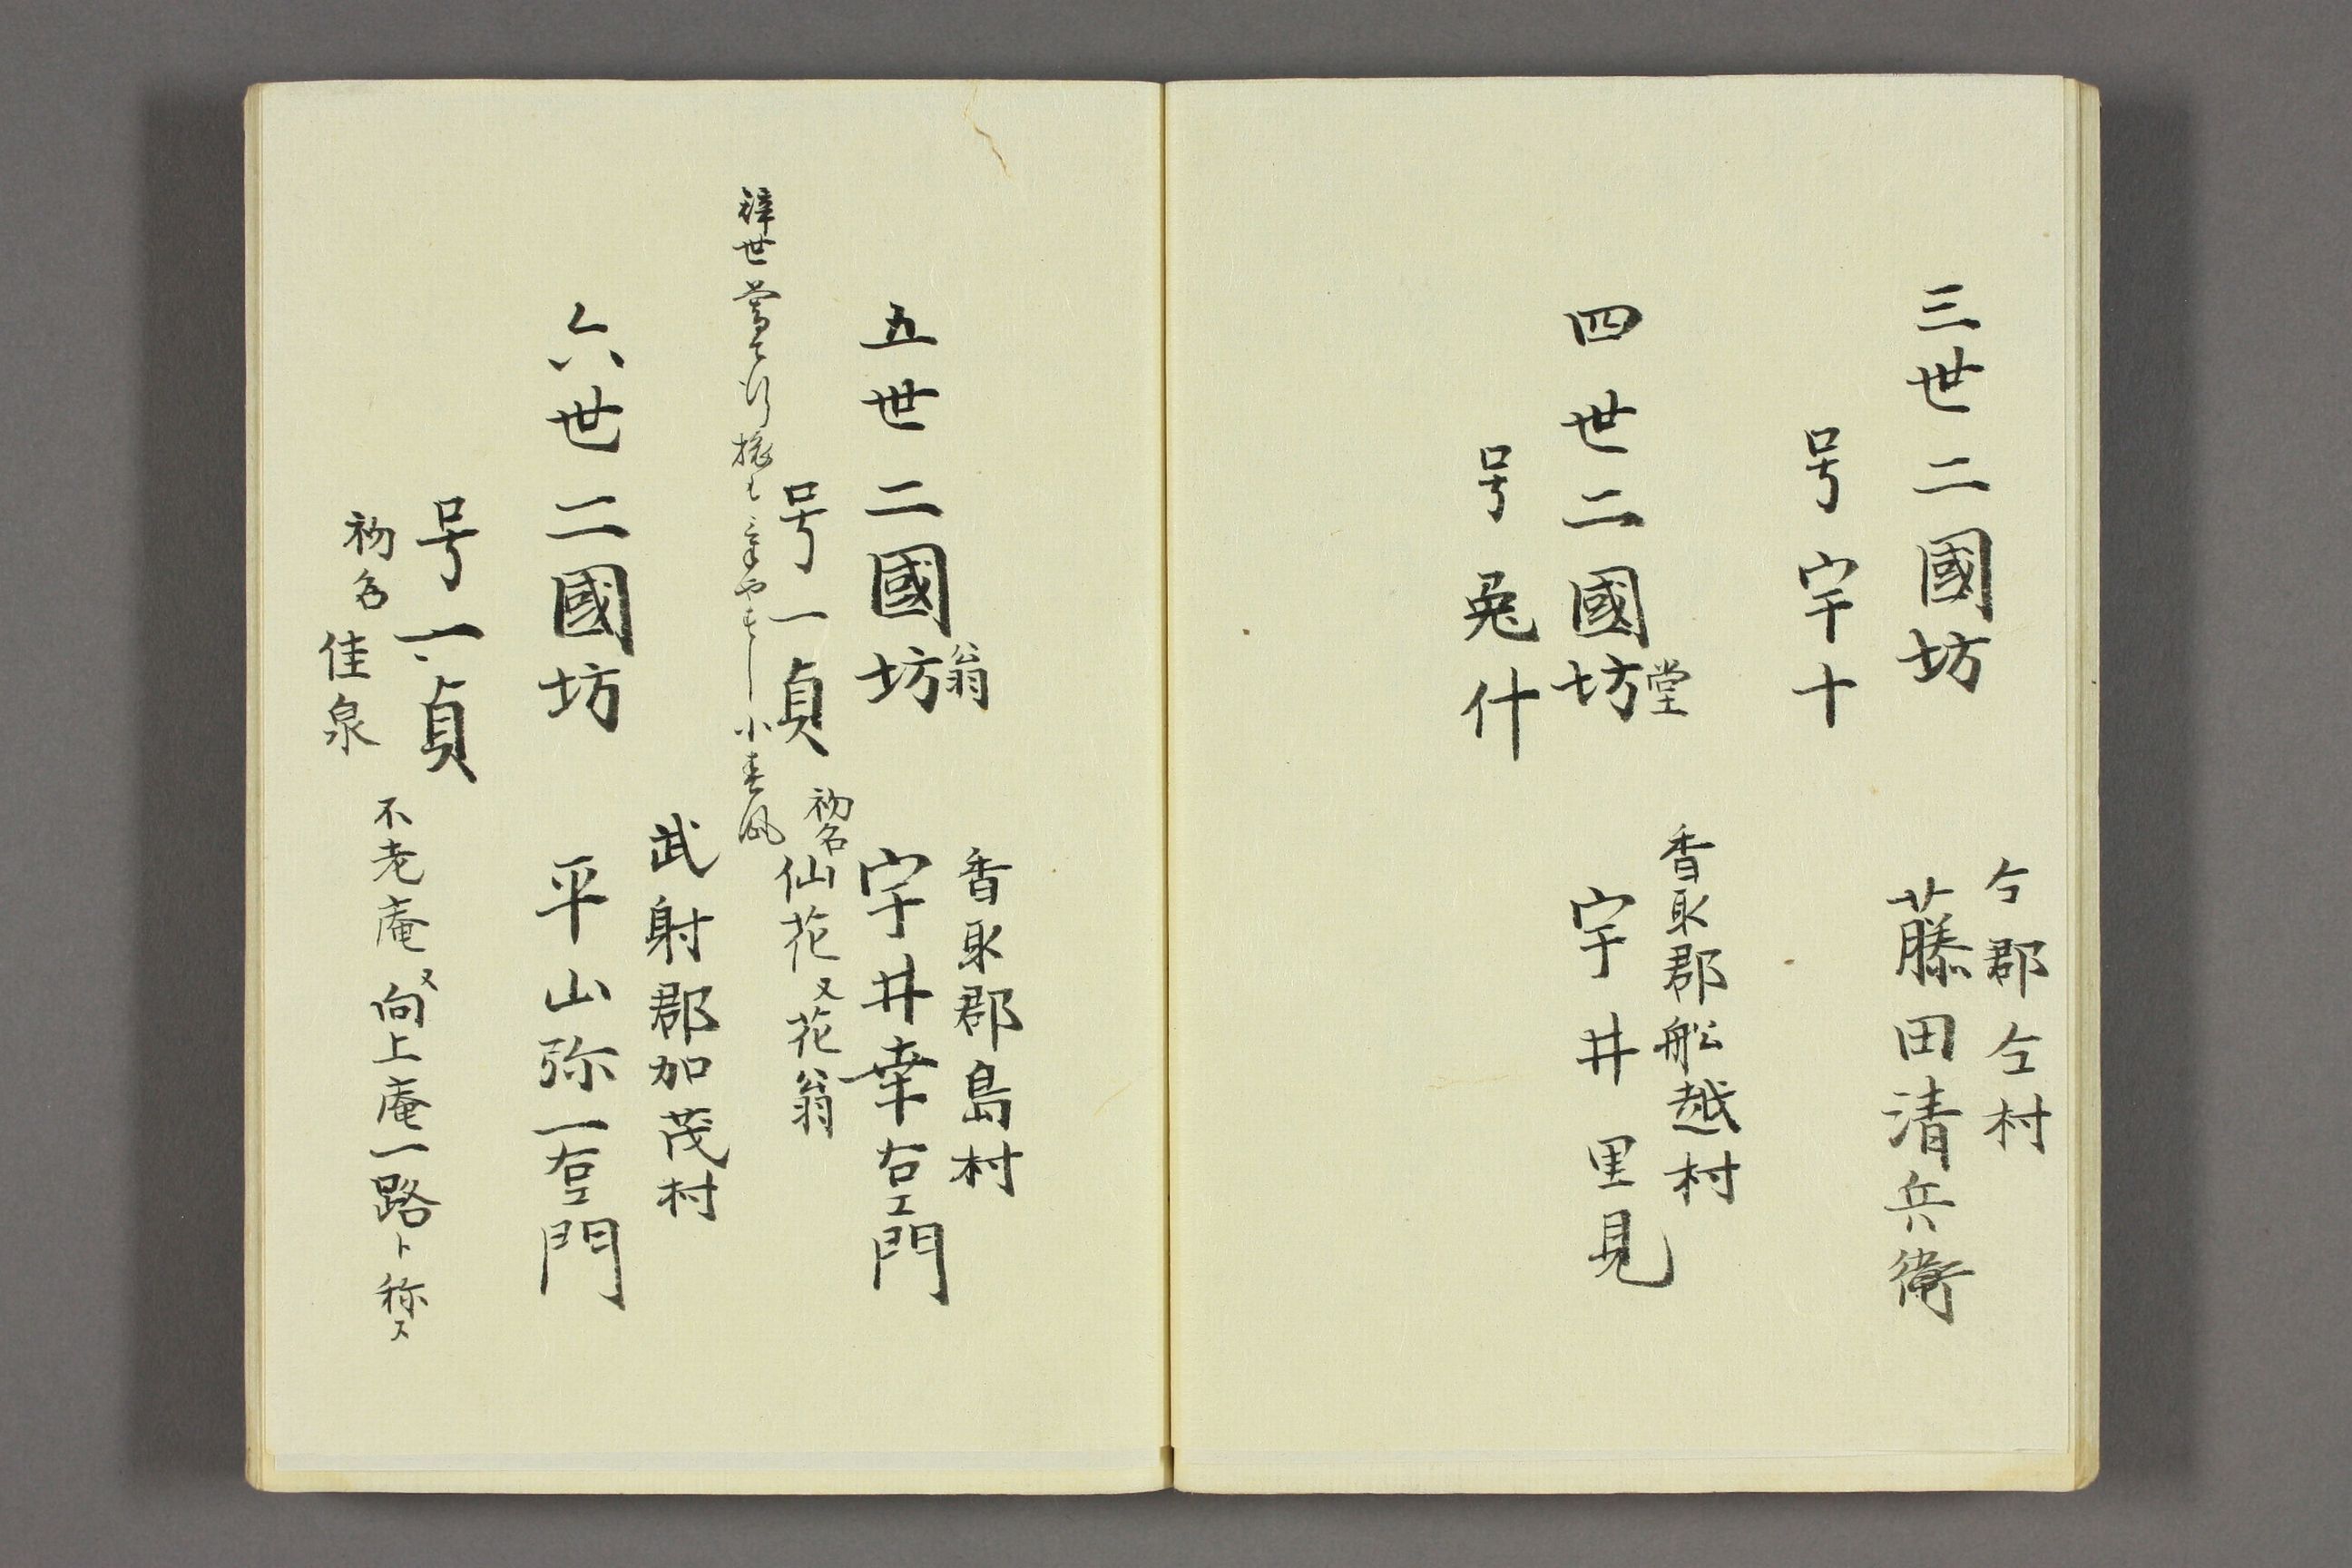 三世二國坊
仝郡仝村
藤田清兵衛
号宇十
四世二國坊堂
香取郡舩越村
宇井里見
号兎什
五世二國坊翁
香取郡島村
宇井幸右エ門
号一貞
初名仙花又花翁
辞世
小春風
武射郡加茂村
六世二國坊
平山弥一右エ門
号一貞
初名佳泉
不老庵又向上庵一路ト称ス